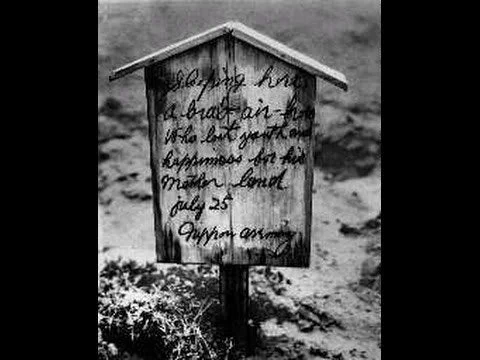 Sleeping here
a brave air-hero
Who lost youth and
happiness for his
Mother land
july 25
Nippon army